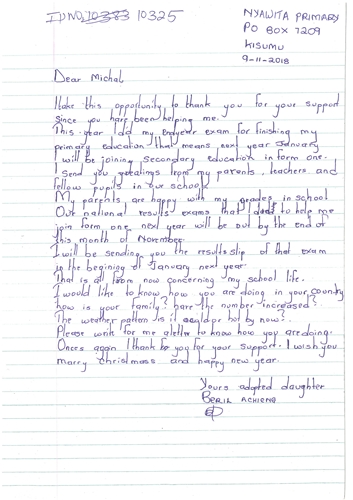 IDNO 10383 10325
NYAWITA PRIMARY
PO BOX 7209
KISUMU
9-11-2018
Dear Michal
I take this opportunity to thank you for your support
since you have been helping me.
This year I did my endyear exam for finishing my
primary education that means next year January
I will be joining secondary education in form one.
I send you greetings from my parents, teachers and
fellow pupils in our school.
My parents are happy with my grades in school
Our national results exams that I to help me
join form one next year will be out by the end of
this month of November.
I will be sending you the results slip of that exam
in the begining of January next year.
That is all from now concerning my school life.
I would like to know how you are doing in your country
how is your family? have the number increased?
The weather pattern is it cold or hot by now?.
Please write for me a letter to know how you are doing.
Onces again I thank you for your support. I wish you
marry Christmass and happy new year.
Yours adopted daughter
BERIL ACHIENG